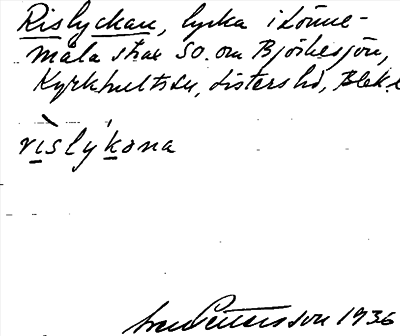 Rislyckan, lycka i Lönne-
måla strax SO. om Björkesjön,
Kyrkhults sn, Listers hd, Blek.l
rìslýkana
Pettersson 1936